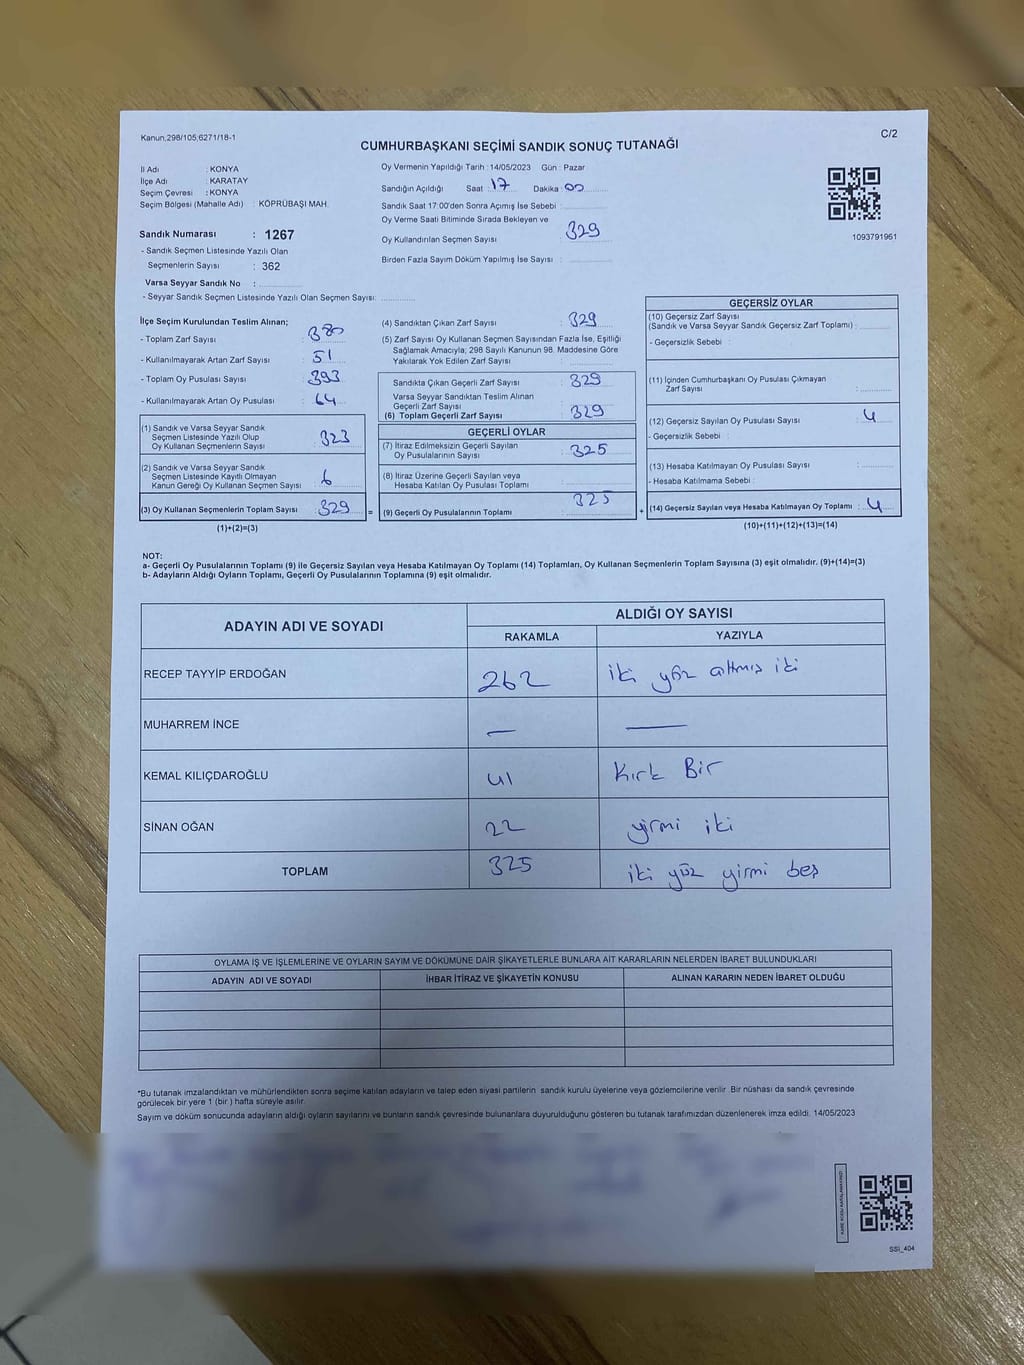 Kanun,298/105,6271/18-1
C/2
CUMHURBAŞKANI SEÇİMİ SANDIK SONUÇ TUTANAĞI
İl Adı : KONYA
İlçe Adı : KARATAY
Seçim Çevresi : KONYA
Seçim Bölgesi (Mahalle Adı) : KÖPRÜBAŞI MAH.
Sandık Numarası : 1267
- Sandık Seçmen Listesinde Yazılı Olan
Seçmenlerin Sayısı : 362
Varsa Seyyar Sandık No :
- Seyyar Sandık Seçmen Listesinde Yazılı Olan Seçmen Sayısı:
Oy Vermenin Yapıldığı Tarih : 14/05/2023 Gün : Pazar
Sandığın Açıldığı Saat : 17 Dakika : 00
Sandık Saat 17:00'den Sonra Açımış İse Sebebi :
Oy Verme Saati Bitiminde Sırada Bekleyen ve
Oy Kullandırılan Seçmen Sayısı : 329
Birden Fazla Sayım Döküm Yapılmış İse Sayısı :
1093791961
İlçe Seçim Kurulundan Teslim Alınan;
- Toplam Zarf Sayısı : 380
- Kullanılmayarak Artan Zarf Sayısı : 51
- Toplam Oy Pusulası Sayısı : 393
- Kullanılmayarak Artan Oy Pusulası : 64
(1) Sandık ve Varsa Seyyar Sandık
Seçmen Listesinde Yazılı Olup
Oy Kullanan Seçmenlerin Sayısı : 323
(2) Sandık ve Varsa Seyyar Sandık
Seçmen Listesinde Kayıtlı Olmayan
Kanun Gereği Oy Kullanan Seçmen Sayısı : 6
(3) Oy Kullanan Seçmenlerin Toplam Sayısı : 329
(1)+(2)=(3)
(4) Sandıktan Çıkan Zarf Sayısı : 329
(5) Zarf Sayısı Oy Kullanan Seçmen Sayısından Fazla İse, Eşitliği
Sağlamak Amacıyla; 298 Sayılı Kanunun 98. Maddesine Göre
Yakılarak Yok Edilen Zarf Sayısı :
Sandıkta Çıkan Geçerli Zarf Sayısı : 329
Varsa Seyyar Sandıktan Teslim Alınan
Geçerli Zarf Sayısı :
(6) Toplam Geçerli Zarf Sayısı : 329
GEÇERLİ OYLAR
(7) İtiraz Edilmeksizin Geçerli Sayılan
Oy Pusulalarının Sayısı : 325
(8) İtiraz Üzerine Geçerli Sayılan veya
Hesaba Katılan Oy Pusulası Toplamı :
= (9) Geçerli Oy Pusulalarının Toplamı : 325
GEÇERSİZ OYLAR
(10) Geçersiz Zarf Sayısı
(Sandık ve Varsa Seyyar Sandık Geçersiz Zarf Toplamı) :
- Geçersizlik Sebebi :
(11) İçinden Cumhurbaşkanı Oy Pusulası Çıkmayan
Zarf Sayısı :
(12) Geçersiz Sayılan Oy Pusulası Sayısı : 4
- Geçersizlik Sebebi :
(13) Hesaba Katılmayan Oy Pusulası Sayısı :
- Hesaba Katılmama Sebebi :
+ (14) Geçersiz Sayılan veya Hesaba Katılmayan Oy Toplamı : 4
(10)+(11)+(12)+(13)=(14)
NOT:
a- Geçerli Oy Pusulalarının Toplamı (9) ile Geçersiz Sayılan veya Hesaba Katılmayan Oy Toplamı (14) Toplamları, Oy Kullanan Seçmenlerin Toplam Sayısına (3) eşit olmalıdır. (9)+(14)=(3)
b- Adayların Aldığı Oyların Toplamı, Geçerli Oy Pusulalarının Toplamına (9) eşit olmalıdır.
ADAYIN ADI VE SOYADI
ALDIĞI OY SAYISI
RAKAMLA YAZIYLA
RECEP TAYYİP ERDOĞAN 262 iki yüz altmış iki
MUHARREM İNCE — —
KEMAL KILIÇDAROĞLU 41 Kırk Bir
SİNAN OĞAN 22 yirmi iki
TOPLAM 325 iki yüz yirmi beş
OYLAMA İŞ VE İŞLEMLERİNE VE OYLARIN SAYIM VE DÖKÜMÜNE DAİR ŞİKAYETLERLE BUNLARA AİT KARARLARIN NELERDEN İBARET BULUNDUKLARI
ADAYIN ADI VE SOYADI İHBAR İTİRAZ VE ŞİKAYETİN KONUSU ALINAN KARARIN NEDEN İBARET OLDUĞU
*Bu tutanak imzalandıktan ve mühürlendikten sonra seçime katılan adayların ve talep eden siyasi partilerin sandık kurulu üyelerine veya gözlemcilerine verilir. Bir nüshası da sandık çevresinde
görülecek bir yere 1 (bir) hafta süreyle asılır.
Sayım ve döküm sonucunda adayların aldığı oyların sayılarını ve bunların sandık çevresinde bulunanlara duyurulduğunu gösteren bu tutanak tarafımızdan düzenlenerek imza edildi. 14/05/2023
SSI_404